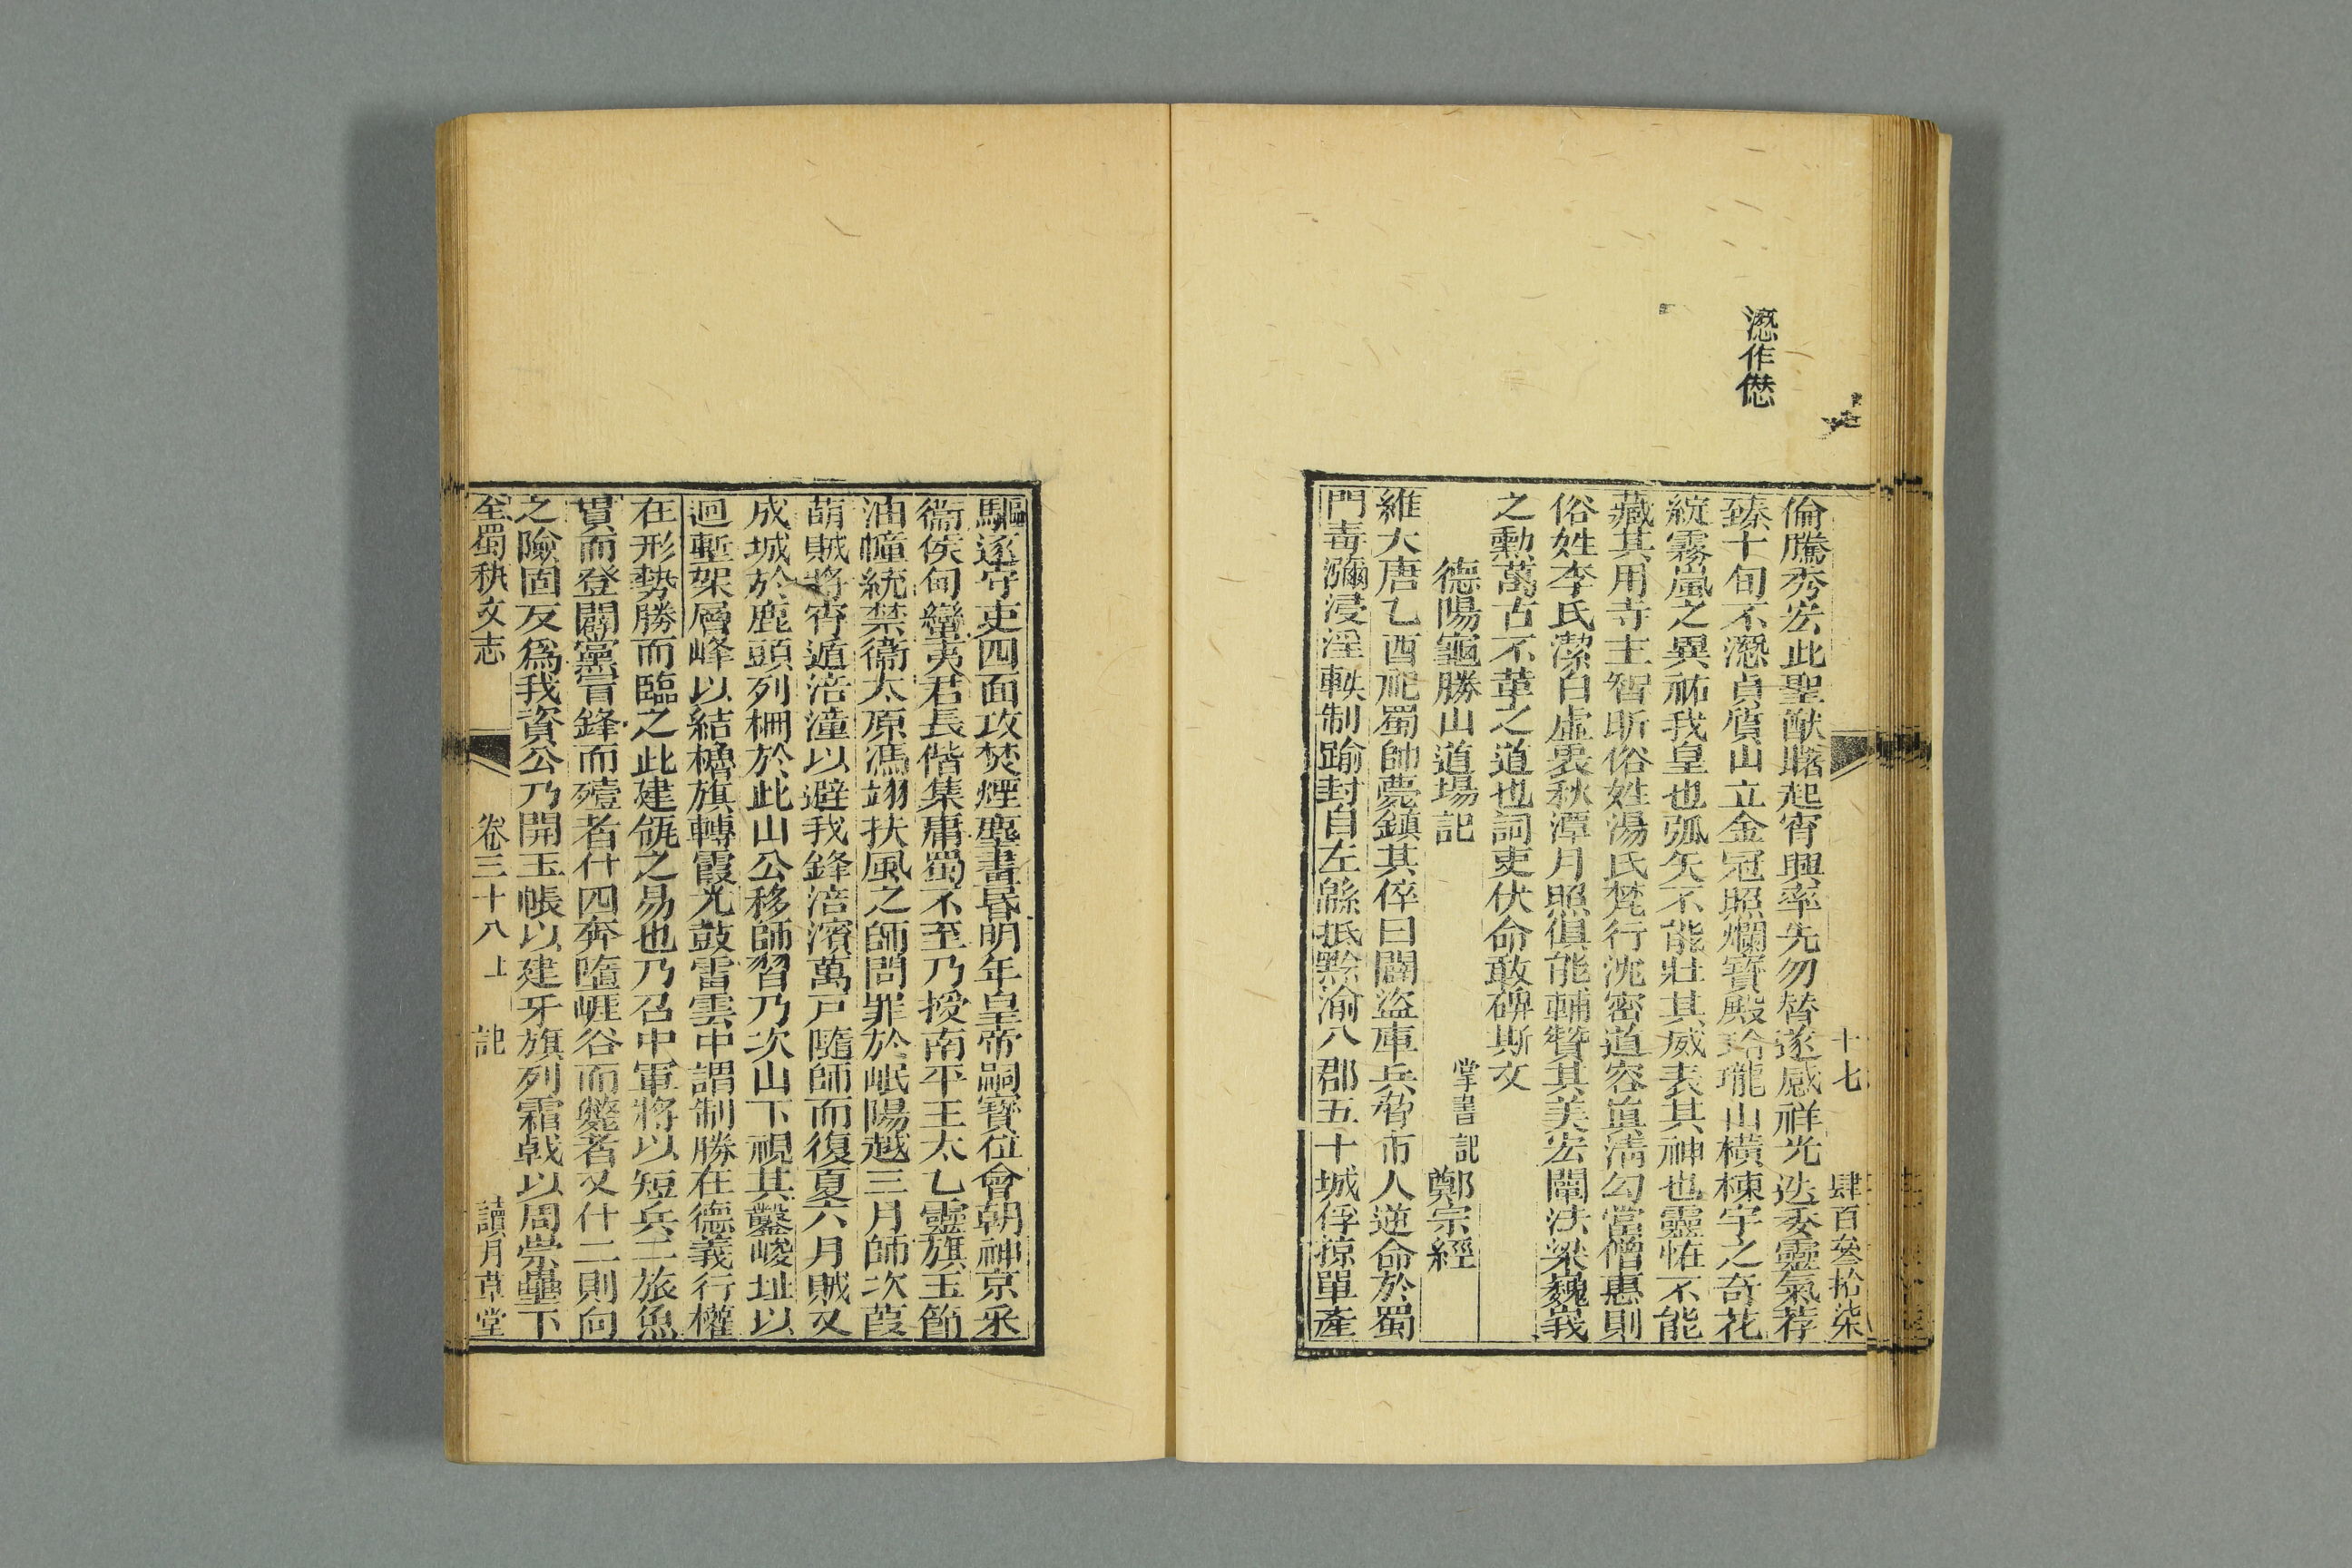 十七
肆百叁拾柒
㵣作㦣
倫騰秀宏此聖猷曙起宵興率先勿替遂感祥光迭委靈氣荐
臻十旬不㵣貞質山立金冠照爛寶殿玲瓏山橫棟宇之奇花
統霧嵐之異祐我皇也弧矢不能壯其威表其神也靈怪不能
藏其用寺主智昕俗姓湯氏梵行沈密道容眞淸勾當僧惠則
俗姓李氏潔白虛裏秋潭月照俱能輔贊其美宏闡法梁巍峩
之勳萬古不革之道也詞吏伏命敢碑斯文
德陽龜勝山道場記
掌書記鄭宗經
維大唐乙酉祀蜀帥薨鎭其倅曰闢盜庫兵脅市人逆命於蜀
門毒瀰浸淫軼制踰封自左緜抵黔渝八郡五十城俘掠單產
驅逐守吏四面攻焚煙塵晝昬明年皇帝嗣寶位會朝神京采
衞侯甸蠻夷君長偕集庸蜀不至乃授南平王太乙靈旗玉節
油幢統禁衞太原馮翊扶風之師問罪於岷陽越三月師次葭
萌賊將宵遁涪潼以避我鋒涪濱萬戸隨師而復夏六月賊又
成城於鹿頭列柵於此山公移師習乃次山下視其鑿峻址以
迴塹架層峰以結櫓旗轉霞光鼓雷雲中謂制勝在德義行權
在形勢勝而臨之此建瓴之易也乃召中軍將以短兵二旅魚
貫而登闢黨冒鋒而殪者什四奔墮崕谷而斃者又什二則向
之險固反爲我資公乃開玉帳以建牙旗列霜戟以周崇壘下
全蜀秇文志
卷三十八上
記
讀月草堂